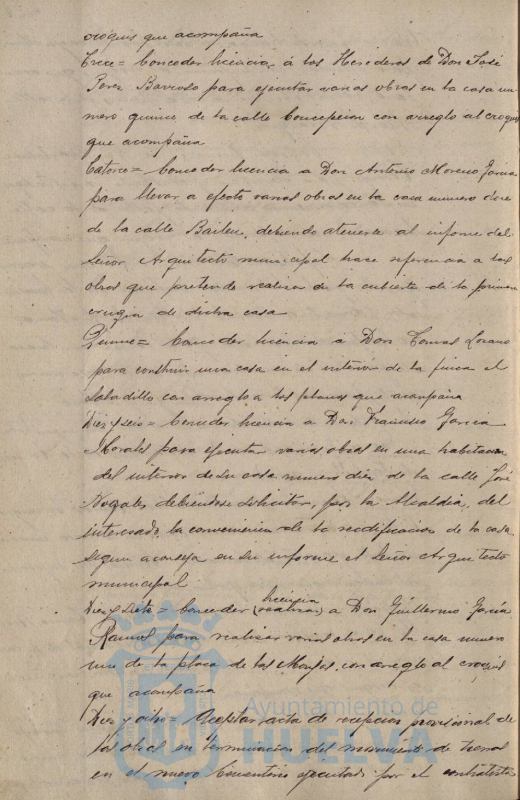 croquis que acompaña
Trece = Conceder licencia á los Herederos de Don José
Perez Barroso para ejecutar varias obras en la casa nu-
mero quince de la calle Concepcion con arreglo al croquis
que acompaña
Catorce = Conceder licencia a Don Antonio Moreno Garcia
para llevar a efecto varias obras en la casa numero doce
de la calle Bailen, debiendo atenerse al informe del
Señor Arquitecto municipal hace referencia a las
obras que pretende realizar de la cubierta de la primera
crugia de dicha casa
Quince = Conceder licencia á Don Tomas Lozano
para construir una casa en el interior de la finca el
Saladillo con arreglo a los planos que acompaña
Diez y seis = Conceder licencia a Don Francisco Garcia
Morales para ejecutar varias obras en una habitacion
del interior de su casa numero diez de la calle José
Nogales debiendose solicitar, por la Alcaldia, del
interesado, la conveniencia de la reedificacion de la casa
segun aconseja en su informe el Señor Arquitecto
municipal
Diez y siete = Conceder licencia (realizar) a Don Guillermo Garcia
Ramos para realizar varias obras en la casa numero
uno de la plaza de las Monjas, con arreglo al croquis
que acompaña
Diez y ocho = Aceptar acta de recepcion provisional de
las obras en terminacion del movimiento de tierras
en el nuevo Cementerio ejecutado por el contratista
Ayuntamiento de
HUELVA